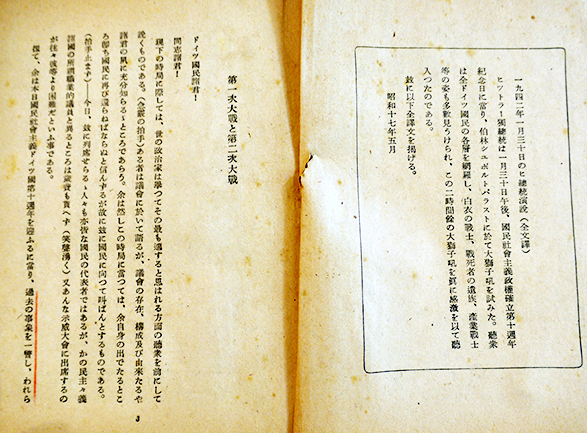 一九四二年一月三十日のヒ總統演說(全文譯)
ヒツトラー獨總統は一月三十日午後、國民社會主義政權確立第十週年
紀念日に當り、伯林シユポルトパラストに於て大獅子吼を試みた。聽衆
は全ドイツ國民の各層を網羅し、白衣の戰士、戰死者の遺族、產業戰士
等の姿も多數見うけられ、この二時間餘の大獅子吼を眞に感激を以て聽
入つたのである。
玆に以下全譯文を揭げる。
昭和十七年五月
第一次大戰と第二次大戰
ドイツ國民諸君!
同志諸君!
現下の時局に際しては、世の政治家は擧つてその最も適すると思はれる方面の聽衆を前にして
說くものである。(會嚴の拍手)ある者は議會に於いて語るが、議會の存在、構成及び由來たるや
諸君の夙に充分知らるゝところであらう。余は然しこの時局に當つては、余自身の出でたるとこ
ろ卽ち國民に再び還らねばならぬと信んするが故に玆に國民に向つて叫ばんとするものである。
(拍手止まず)——今日、玆に列席せらるゝ人々も亦皆な國民の代表者ではあるが、かの民主々義
諸國の所謂職業的議員と異るところは歲費も貰へず(笑聲湧く)又あんな示威大會に出席するの
が往々彼等より困難だといふ事である。
扨て、余は本日國民社會主義ドイツ國第十週年を迎ふるに當り、過去の事象を一瞥し、われら
3